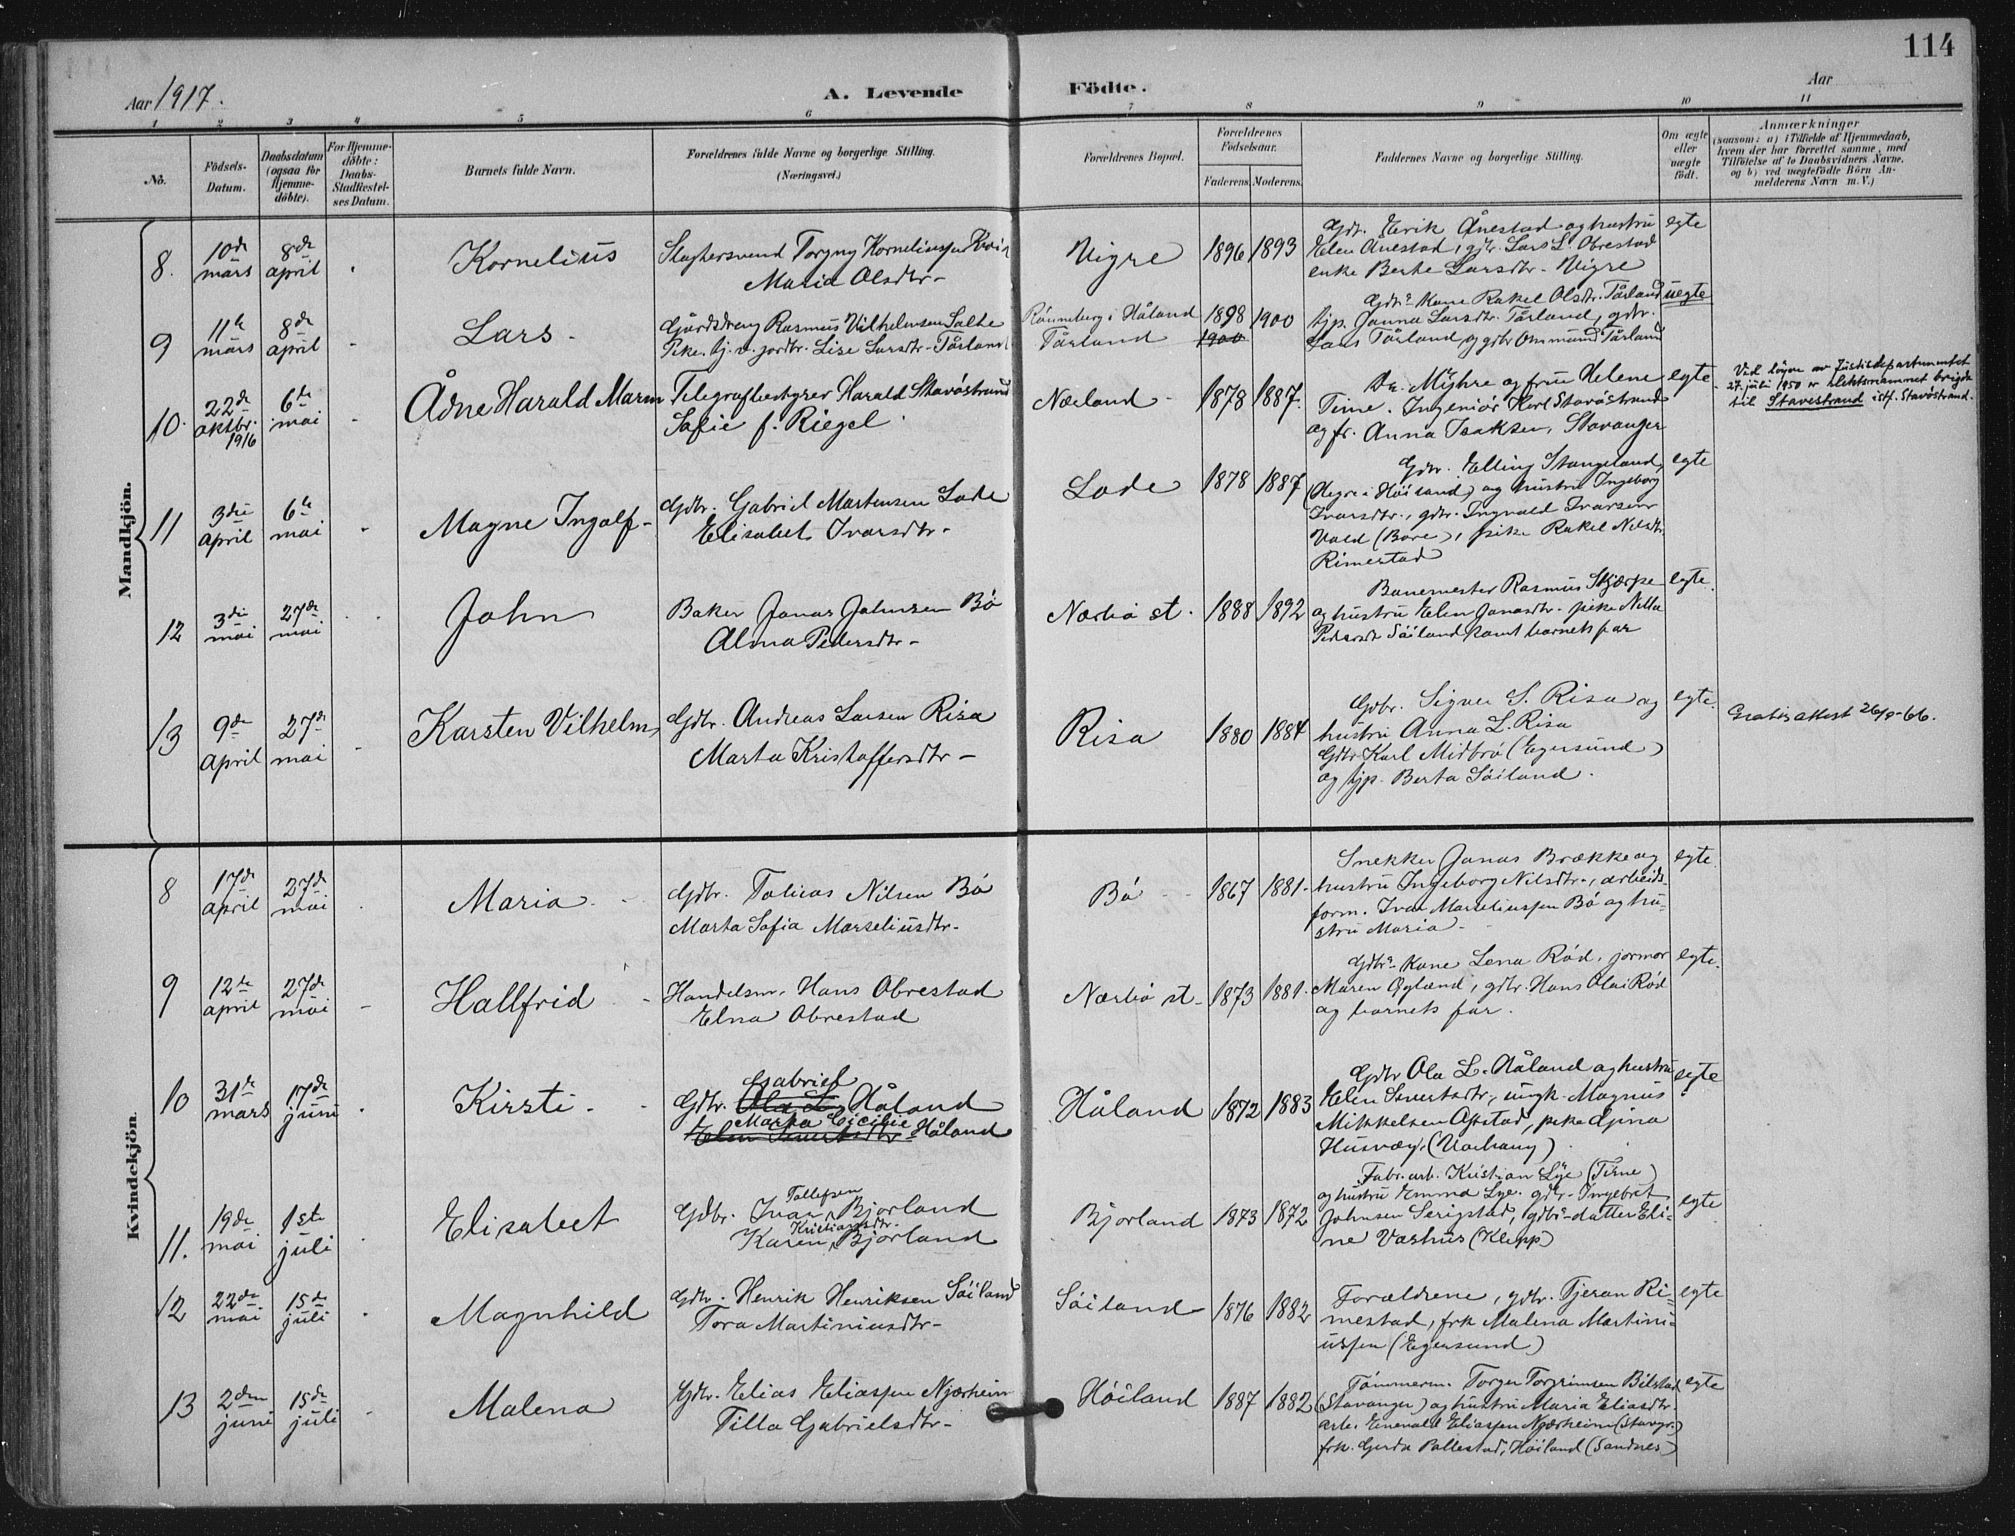 114
Aar 1917.
A. Levende Födte.
Aar
1 2 3 4 5 6 7 8 9 10 11
No.
Födsels-Datum.
Daabsdatum (ogsaa for Hjemme-döbte).
For Hjemme-döbte: Daabs-Stadfæstel-ses Datum.
Barnets fulde Navn.
Forældrenes fulde Navne og borgerlige Stilling. (Næringsvei.)
Forældrenes Bopæl.
Forældrenes Födselsaar.
Faderens. Moderens.
Faddernes Navne og borgerlige Stilling.
Om ægte eller uægte födt.
Anmærkninger
(saasom: a) i Tilfælde af Hjemmedaab,
hvem der har forrettet samme, med
Tilföielse af to Daabsvidners Navne.
og b) ved uægtefödte Börn An-
melderens Navn m. V.)
Mandkjön.
8. 10de mars 8de april
Kornelius
Slagtersvend Torgny Korneliussen
Maria Olsdtr-
Nigre 1896 1893
Gdr. Eirik Ånestad og hustru
Elen Ånestad, gdr. Lars L. Obrestad
enke Berte Larsdtr. Nigre
egte
9 11te mars 8de april
Lars-
Gårdsdreng Rasmus Vilhelmsen Salte
Pike, tj. v. jordbr. Lise Larsdtr. Tårland
Rønneberg i Håland
Tårland
1898 1900
1900
Gdbrs Kone Rakel Olsdr. Tårland
tjp. Janna Larsdtr. Tårland, gdr.
Lars Tårland og gdbr Ommund Tårland
uegte
10. 22de oktbr. 1916 6te mai
Ådne Harald Marm
Telegrafbestyrer Harald Stavøstrand
Sofie f. Riegel
Nærland- 1878 1887.
Dr. Myhre og frue Helene
Time. Ingeniör Karl Stavøstrand
og fr. Anna Isaksen, Stavanger
egte
Ved løyve av Justisdepartementet
27. juli 1950 er slektsnamnet brigda
til Stavestrand istf. Stavöstrand.
11 3die april 6te mai
Magne Ingolf-
Gdbr. Gabriel Martensen Lode
Elisabet Ivarsdtr-
Lode 1878 1887
Gdbr. Elling Stangeland,
(Negre i Höiland) og hustru Ingeborg
Ivarsdtr., gdr. Ingvald Ivarsen
Vold (Bore), pike Rakel Nilsdtr.
Rimestad
egte
12 3die mai 27de mai
John
Baker Jonas Johnsen Bö
Alma Pedersdtr-
Nærbö st. 1888 1892
Banemester Rasmus Skjærpe
og hustru Elen Jonasdtr. pike Nilla
Pedersdtr Söiland samt barnets far
egte.
13 9de april 27de mai
Karsten Vilhelm
Gdbr. Andreas Larsen Risa
Marta Kristoffersdtr-
Risa 1880 1884
Gdbr. Signer S. Risa og
hustru Anna L. Risa
Gdbr Karl Midbrö (Egersund)
og tjp. Berta Söiland.
egte.
Gratis attest 26/9-66.
Kvindekjön
8 17de april 27de mai
Maria
Gdbr. Tobias Nilsen Bö
Marta Sofia Marseliusdtr-
Bö 1867 1881.
Snekker Jonas Brække og
hustru Ingeborg Nilsdtr., arbeids-
form. Ivar Marseliussen Bö og hu=
stru Maria-
egte
9 12te april 27de mai
Hallfrid
Handelsm. Hans Obrestad
Elna Obrestad
Nærbö st. 1873 1881.
Gdbrs Kone Lena Röd, jormor
Maren Opland, gdbr. Hans Olai Röd
og barnets far.
egte.
10 31te mars 17de juni
Kirsti-
Gabriel
Gdbr. Ola L. Håland
Marta Cicilie
Elen Sivertsdtr Håland
Håland 1872 1883
Gdbr Ola L. Håland og hustru
Elen Sivertsdtr, ungk. Magnus
Mikkelsen Opstad, pike Gjina
Husvæg (Varhaug)
egte
11. 19de mai 1ste juli
Elisabet
Tollefsen
Gdbr. Ivar Bjorland
Kristiansdtr.
Karen Bjorland
Bjorland 1873 1872
Fabr. arb. Kristian Lye (Time)
og hustru Emma Lye. gdbr. Ingebret
Johnsen Serigstad, gdbrs datter Eli-
ne Værhus (Klepp)
egte
12 22de mai 15de juli
Magnhild
Gdbr. Henrik Henriksen Söiland
Tora Martiniusdtr-
Söiland 1876 1882
Forældrene, gdbr. Tjeran Ri=
mestad, frk Malena Martini=
ussen (Egersund)
egte
13 2den juni 15de juli
Malena
Gdbr. Elias Eliassen Njærheim
Tilla Gabrielsdtr-
Höiland 1887 1882
Tömmerm. Torger Torgrimsen Bilstad
(Stavanger) og hustru Maria Eliasdtr.
arb. Enevald Eliassen Njærheim (Stavgr.)
frk. Gerda Pallestad, Höiland (Sandnes)
egte